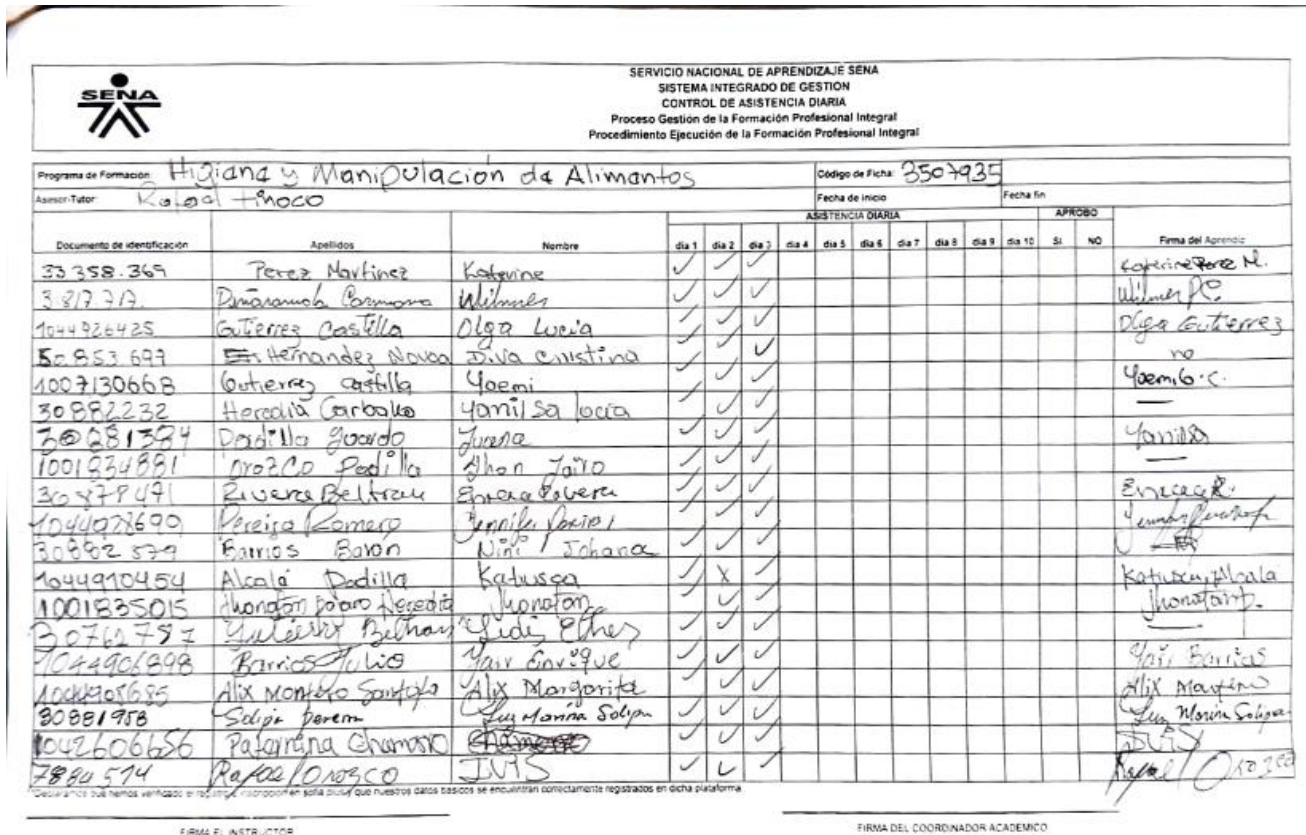 SENA
SERVICIO NACIONAL DE APRENDIZAJE SENA
SISTEMA INTEGRADO DE GESTION
CONTROL DE ASISTENCIA DIARIA
Proceso Gestión de la Formación Profesional Integral
Procedimiento Ejecución de la Formación Profesional Integral
Programa de Formación: Higiana y Manipulación da Alimantos Código de Ficha: 3507935
Asesor-Tutor: Rafael tinoco Fecha de inicio Fecha fin
ASISTENCIA DIARIA APROBO
Documento de identificación Apellidos Nombre día 1 día 2 día 3 día 4 día 5 día 6 día 7 día 8 día 9 día 10 SI NO Firma del Aprendiz
33 358.369 Perez Martinez Katerine ✓ ✓ ✓ Katerine Perez M.
3.817.717. Carmona Wilmer ✓ ✓ ✓ Wilmer P.C.
1044926425 Gutierrez Castilla Olga Lucia ✓ ✓ ✓ Olga Gutierrez
50.853.697 Hernandez Novoa Diva Cristina ✓ ✓ ✓ no
1007130668 Gutierrez castilla Yoemi ✓ ✓ ✓ Yoemi G.C.
30882232 Heredia Carballo Yanilsa lucia ✓ ✓ ✓
Padilla Guardo ✓ ✓ ✓ Yanilsa
1001834881 Orozco Padilla Jhon Jairo ✓ ✓ ✓
30878471 Rivera Beltran ✓ ✓ ✓
1044928690 Pereira Romero Jennifer ✓ ✓ ✓
30882579 Barrios Baron Nini Johana ✓ ✓ ✓
1044910454 Alcalá Padilla Katiusca ✓ X ✓ Katiusca Alcala
1001835015 Jhonatan Heredia Jhonatan ✓ ✓ ✓ Jhonatan
Beltran ✓ ✓ ✓
1044906898 Barrios Julio Yair Enrique ✓ ✓ ✓ Yair Barrios
Alix Montero Alix Margarita ✓ ✓ ✓ Alix Montero
30881958 Luz Marina Solipa ✓ ✓ ✓ Luz Marina Solipa
1042606656 Paternina Chamorro ✓ ✓ ✓ IVIS
7884574 Rafael Orozco IVIS ✓ ✓ ✓ Rafael Orozco
que nuestros datos basicos se encuentran correctamente registrados en dicha plataforma
FIRMA EL INSTRUCTOR FIRMA DEL COORDINADOR ACADEMICO